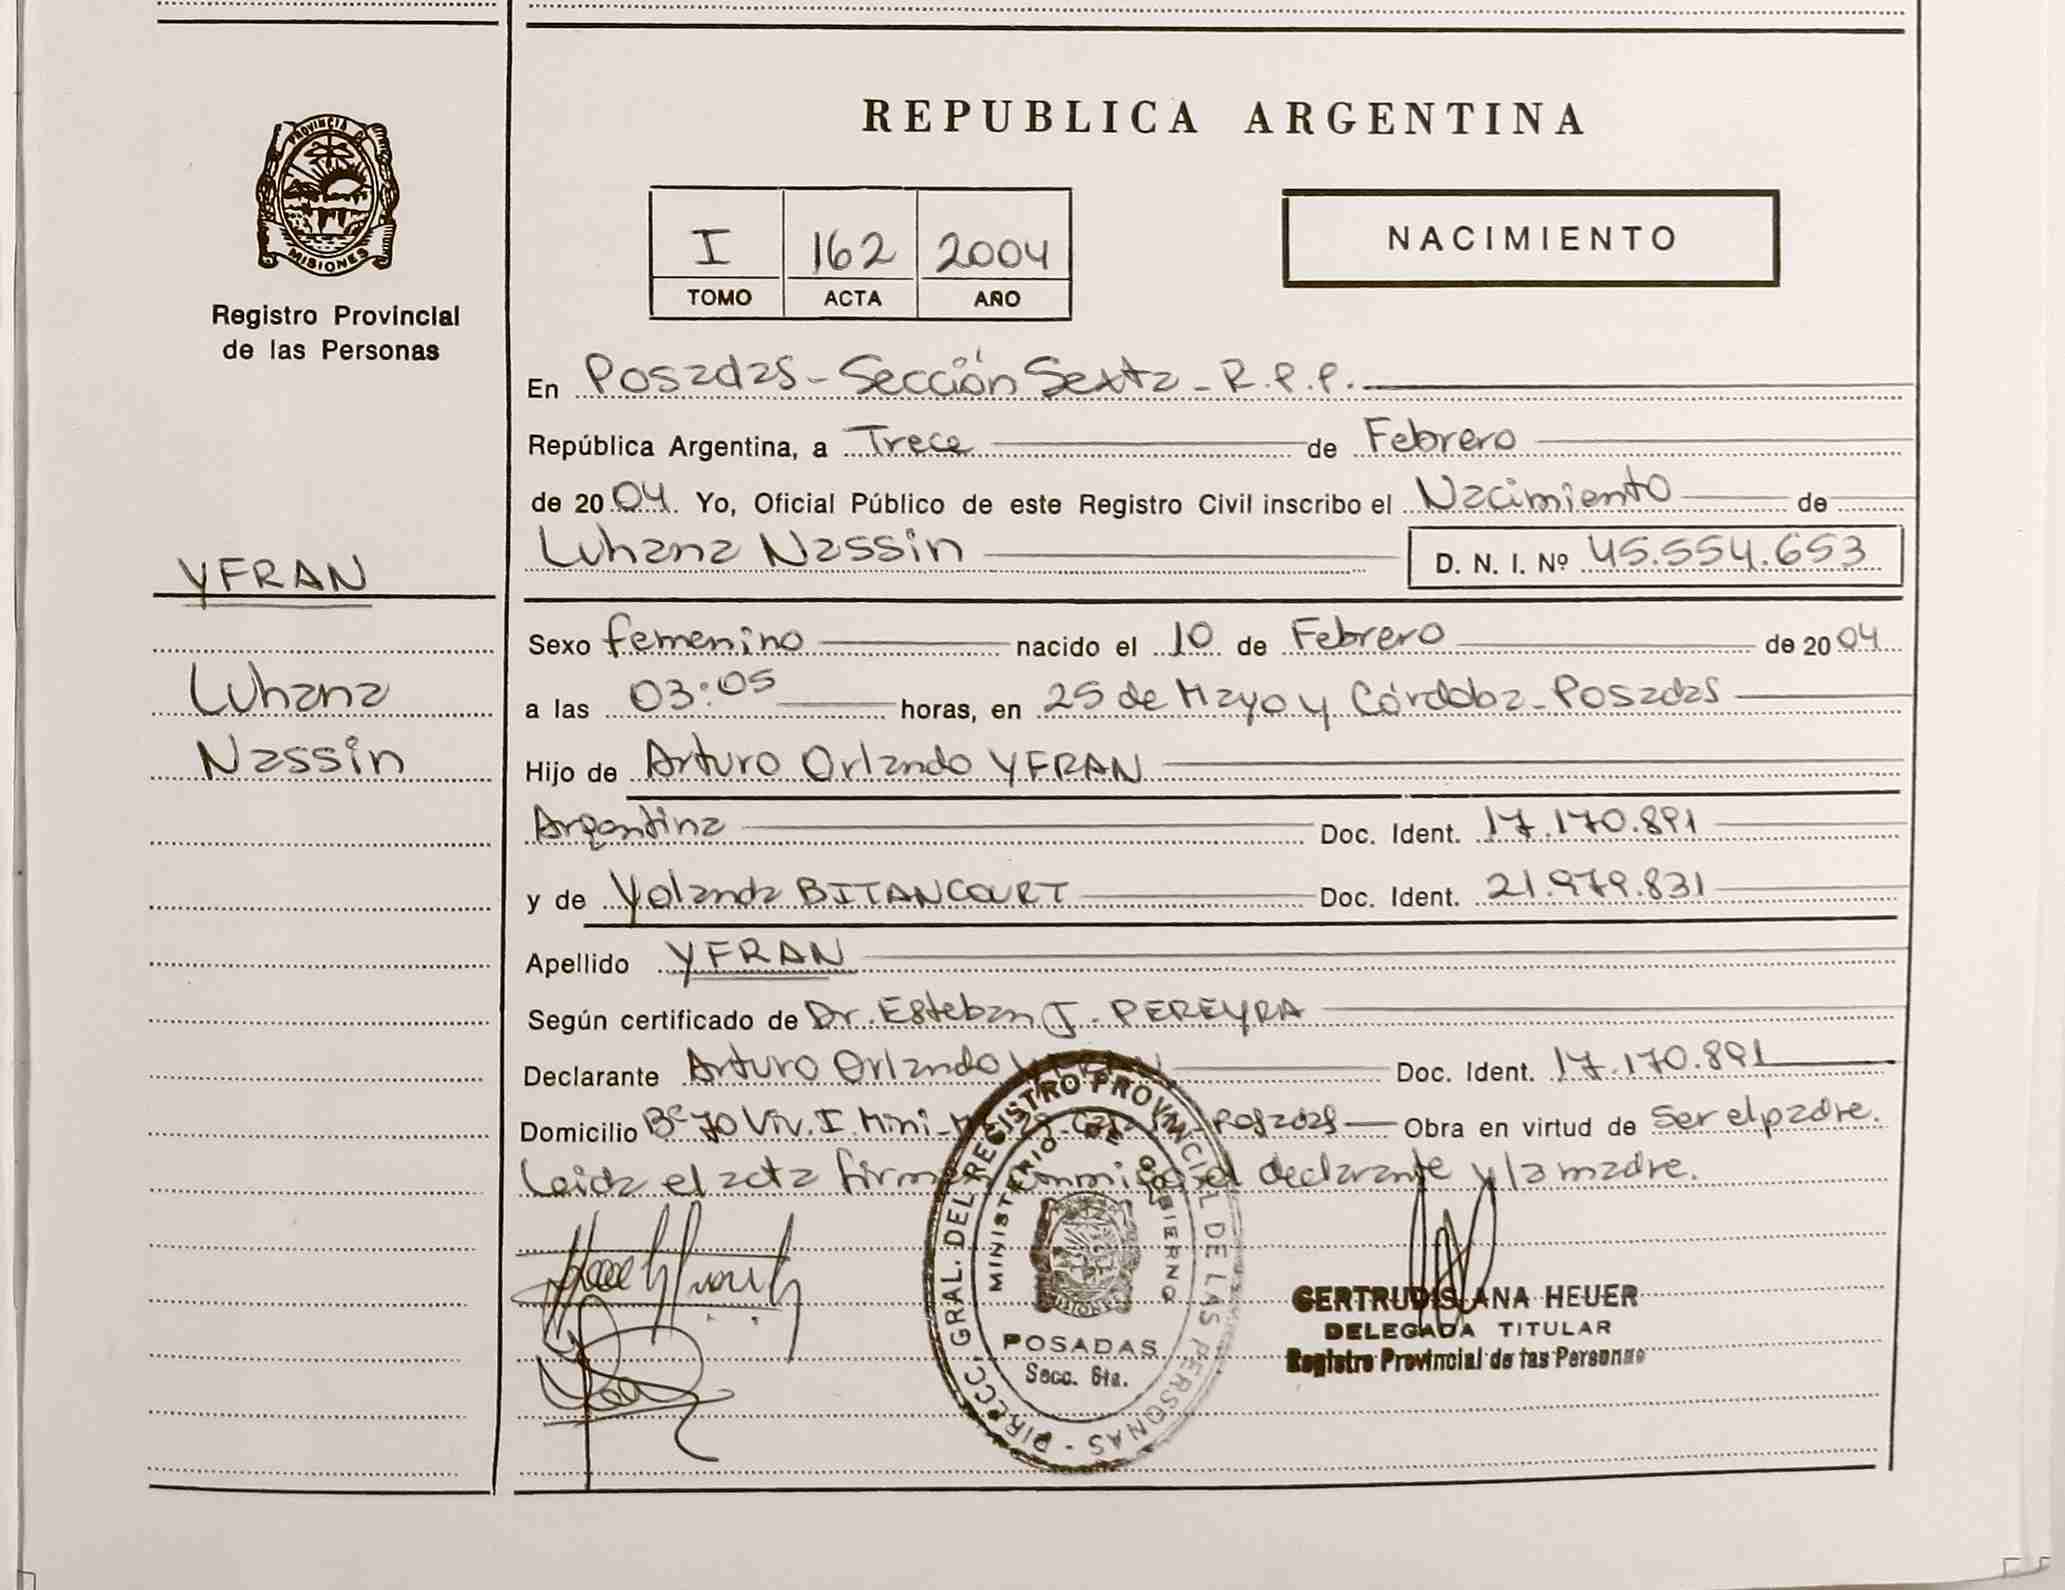 REPUBLICA ARGENTINA
PROVINCIA DE
MISIONES
Registro Provincial
de las Personas
I 162 2004
TOMO ACTA AÑO
NACIMIENTO
En Posadas - Sección Sexta - R.P.P.
República Argentina, a Trece de Febrero
de 2004. Yo, Oficial Público de este Registro Civil inscribo el Nacimiento de
Luhana Nassin D. N. I. Nº 45.554.653
YFRAN
Luhana
Nassin
Sexo femenino nacido el 10 de Febrero de 2004
a las 03:05 horas, en 25 de Mayo y Córdoba - Posadas
Hijo de Arturo Orlando YFRAN
Argentina Doc. Ident. 17.170.891
y de Yolanda BITANCOURT Doc. Ident. 21.979.831
Apellido YFRAN
Según certificado de Dr. Esteban J. PEREYRA
Declarante Arturo Orlando YFRAN Doc. Ident. 17.170.891
Domicilio Bº 70 Viv. I. Mini - Posadas Obra en virtud de ser el padre.
Leida el acta firman conmigo el declarante y la madre.
DIRECC. GRAL. DEL REGISTRO PROVINCIAL DE LAS PERSONAS -
MINISTERIO DE GOBIERNO
MISIONES
POSADAS
Secc. 6ta.
GERTRUDIS ANA HEUER
DELEGADA TITULAR
Registro Provincial de las Personas